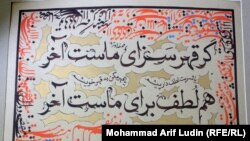 گر قهر سزای ماست آخر
هم لطف برای ماست آخر
Mohammad Arif Ludin (RFE/RL)